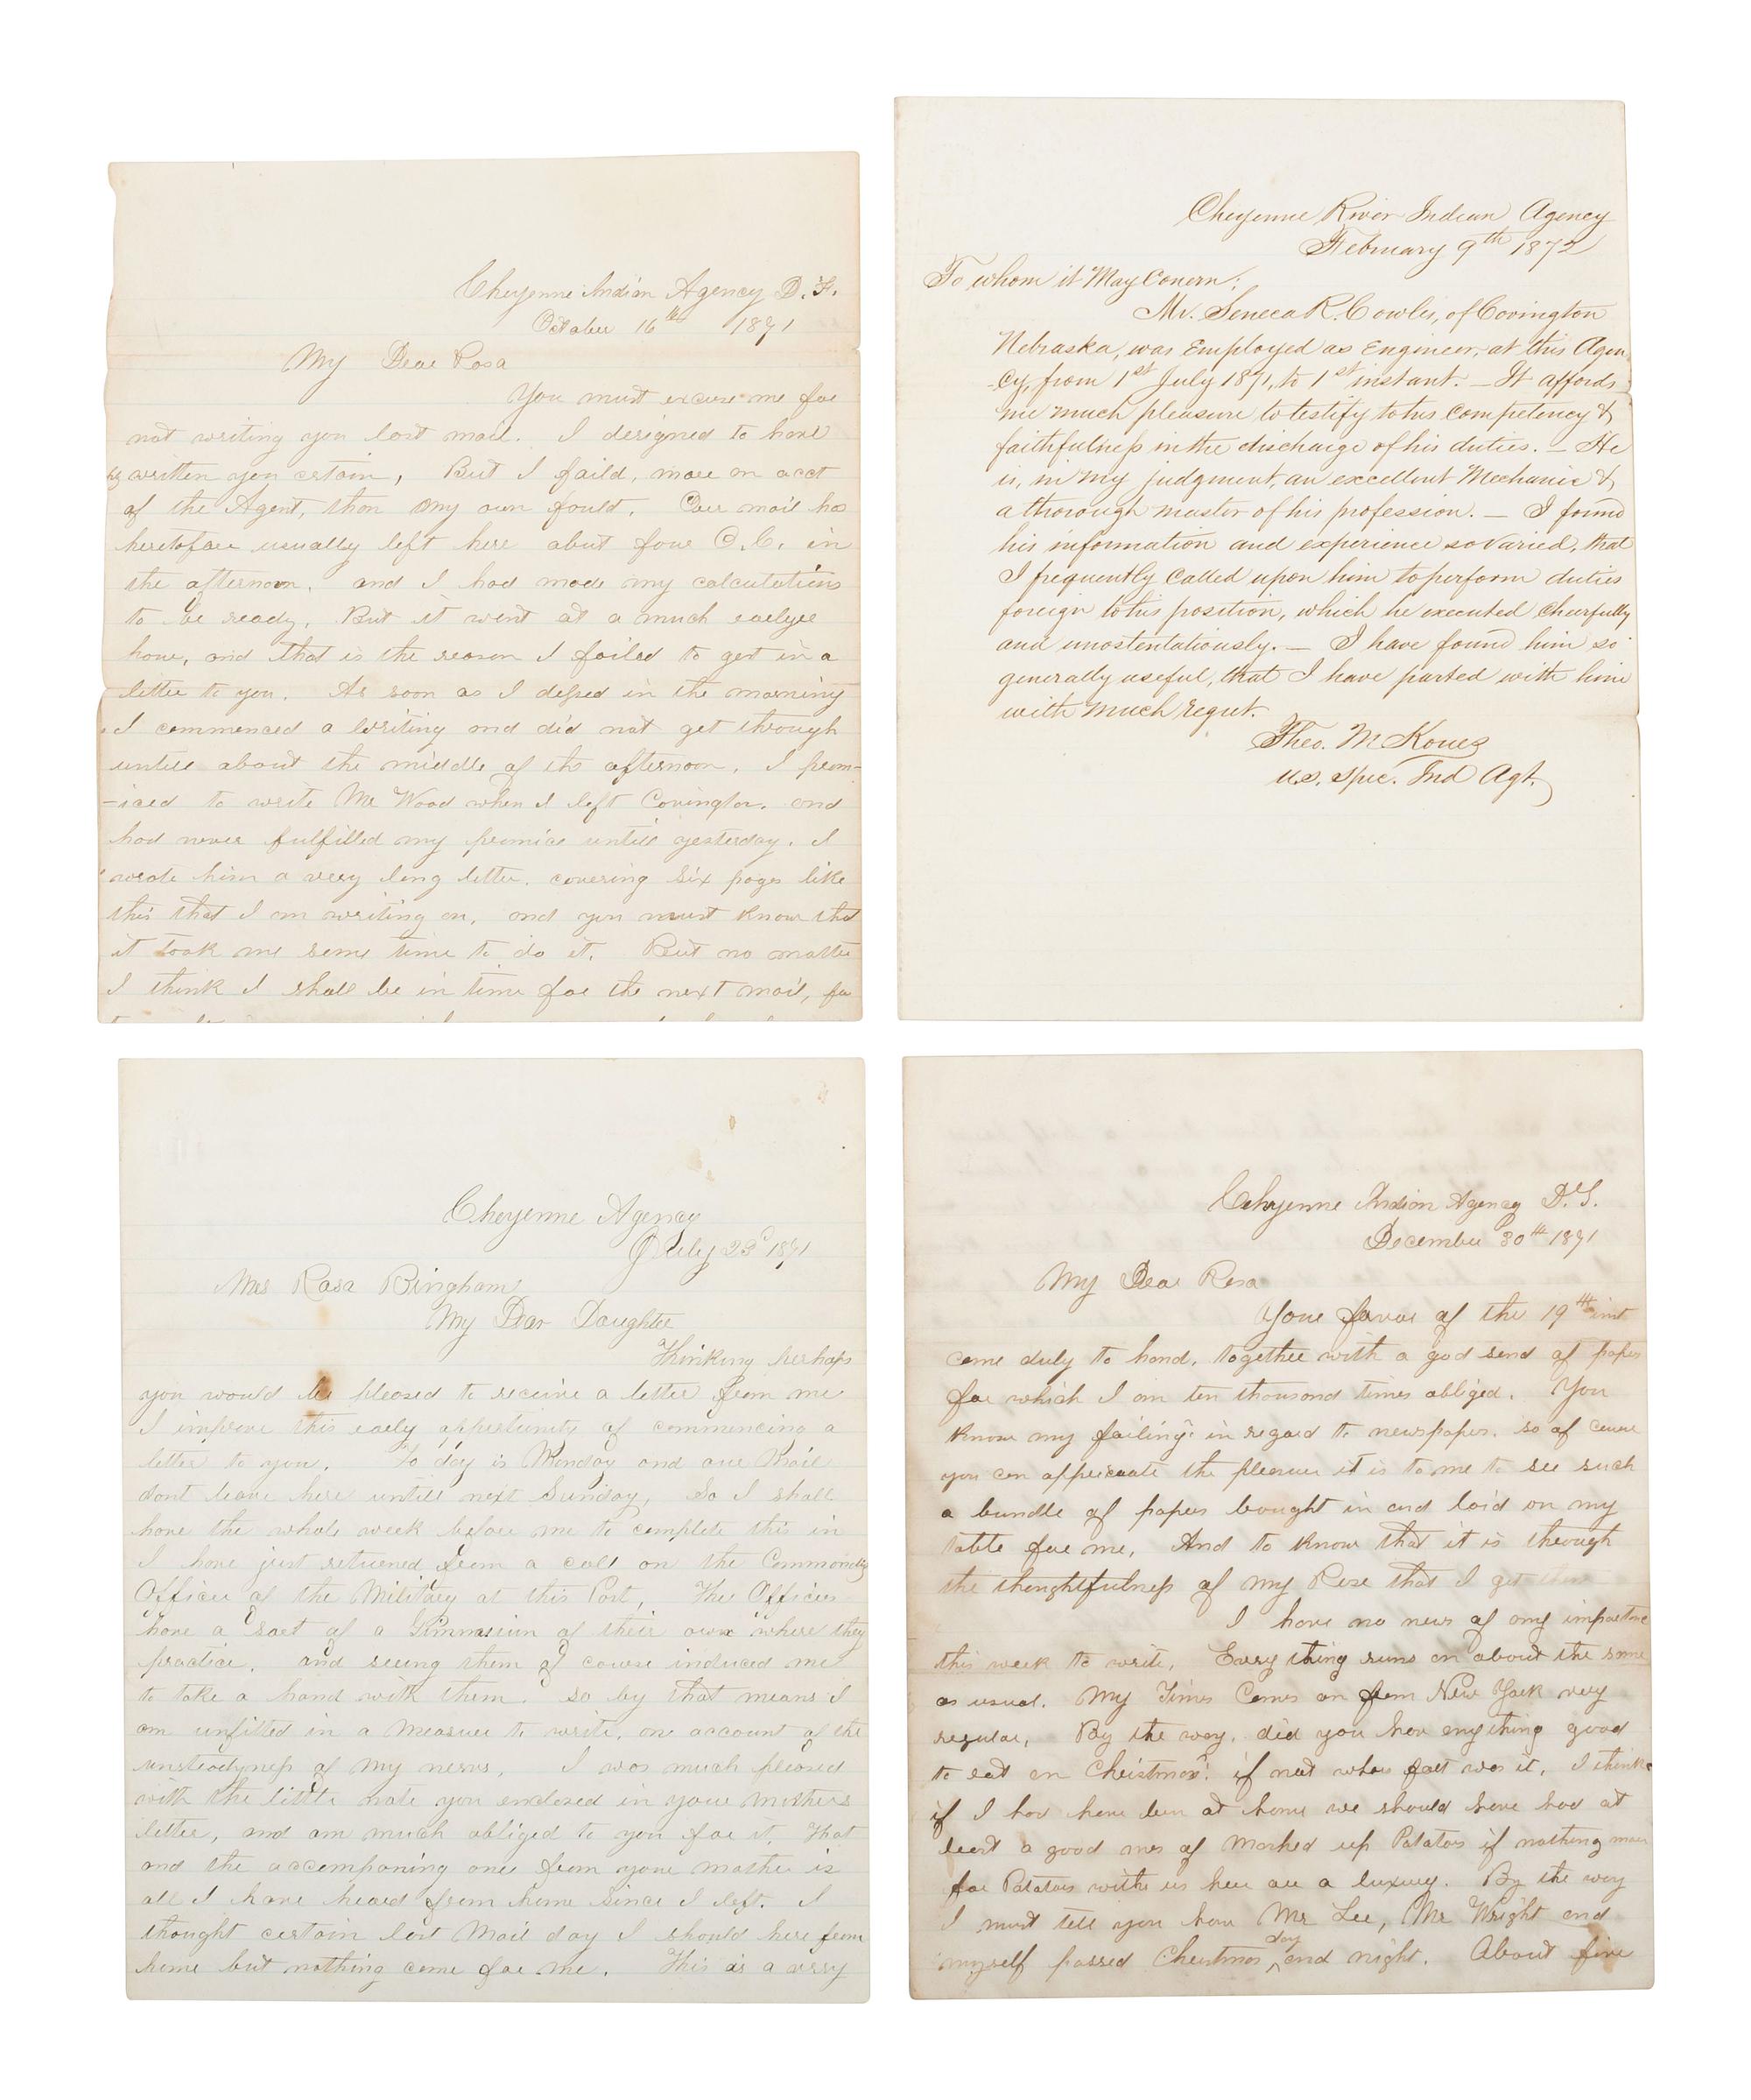 Cheyenne Indian Agency D.T.
October 16th 1871
My Dear Rosa
You must excuse me for
not writing you last mail. I designed to have
written you certain, But I faild, more on acct
of the Agent, than my own fault. Our mail has
heretofore usually left here abut four O.C. in
the afternoon, and I had made my calculations
to be ready, But it went at a much earlyer
hour, and that is the reason I failed to get in a
letter to you. As soon as I dessed in the morning
I commenced a writing and did not get through
untill about the middle of the afternoon. I prom-
-iced to write Mr Wood when I left Covington, and
had never fulfilled my promice untill yesterday. I
wrote him a very long letter, covering six pages like
this that I am writing on, and you must know that
it took me some time to do it. But no matter
I think I shall be in time for the next mail, for
Cheyenne River Indian Agency
February 9th 1872
To whom it May Conern;
Mr. Seneca R. Cowles, of Covington
Nebraska, was Employed as Engineer, at this Agen
-cy, from 1st July 1871, to 1st instant. — It affords
me much pleasure to testify to his Competency &
faithfulness in the discharge of his duties. — He
is, in my judgment, an excellent Mechanic &
a thorough master of his profession. — I found
his information and experience so varied, that
I frequently Called upon him to perform duties
foreign to his position, which he executed Cheerfully
and unostentatiously. — I have found him so
generally useful, that I have parted with him
with much regret.
Theo. M. Koues
U.S. Spec. Ind Agt.
Cheyenne Agency
July 23d 1871
Mrs Rosa Bingham
My Dear Daughter
Thinking perhaps
you would be pleased to receive a letter from me
I improve this early oppertunity of commencing a
letter to you. To day is Monday and our Mail
dont leave here untill next Sunday, So I shall
have the whole week before me to complete this in
I have just returned from a call on the Commanding
Officer of the Military at this Post, The Officers
have a sort of a Gimnasium of their own where they
practice, and seeing them of course induced me
to take a hand with them. so by that means I
am unfitted in a measure to write, on account of the
unsteadyness of my nerves. I was much pleased
with the little note you enclosed in your mothers
letter, and am much obliged to you for it, That
and the accompaning one from your mother is
all I have heard from home since I left. I
thought certain last Mail day I should here from
home but nothing came for me. This is a very
Cehyenne Indian Agency D.T.
December 30th 1871
My Dear Rosa
Your favor of the 19th inst
came duly to hand, together with a god send of papers
for which I am ten thousand times obliged. You
know my failing in regard to newspapers, so of course
you can appreceate the pleasure it is to me to see such
a bundle of papers bought in and laid on my
table for me, And to know that it is through
the thoughtfulness of my Rose that I get them
I have no news of any importance
this week to write, Every thing runs on about the same
as usual. My Times Comes on from New York very
regular, By the way, did you have any thing good
to eat on Christmas? if not whos falt was it, I think
if I had have ben at home we should have had at
least a good mes of Mashed up Patatoes if nothing more
for Patatoes withe us here are a luxury. By the way
I must tell you how Mr Lee, Mr Wright and
myself passed Chestmas day and night. About five